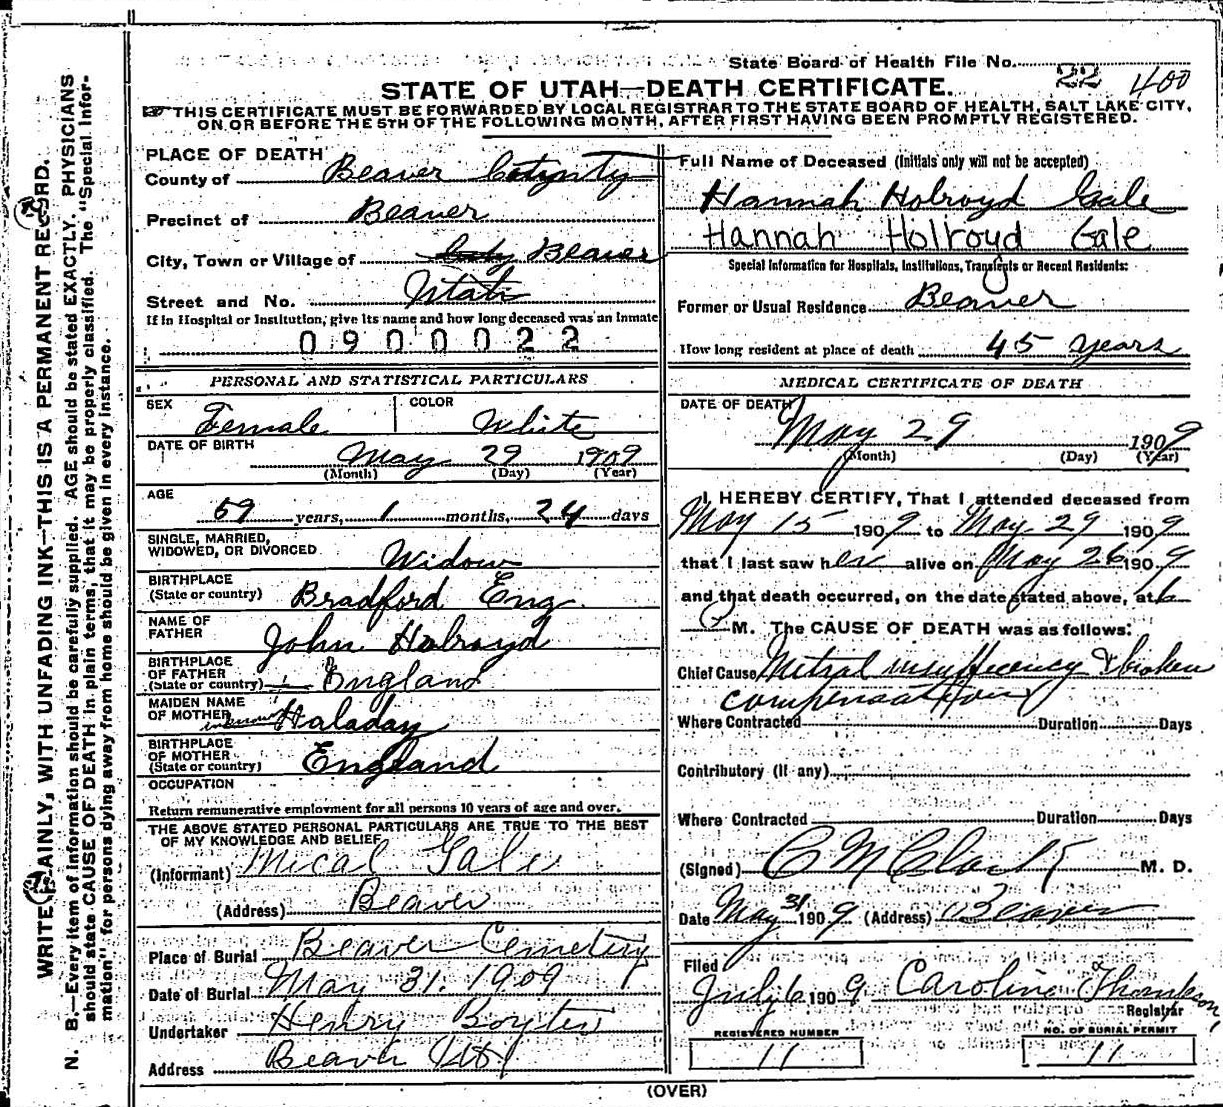 State Board of Health File No. 22 400
STATE OF UTAH—DEATH CERTIFICATE.
THIS CERTIFICATE MUST BE FORWARDED BY LOCAL REGISTRAR TO THE STATE BOARD OF HEALTH, SALT LAKE CITY,
ON OR BEFORE THE 5TH OF THE FOLLOWING MONTH, AFTER FIRST HAVING BEEN PROMPTLY REGISTERED.
WRITE PLAINLY, WITH UNFADING INK—THIS IS A PERMANENT RECORD.
N. B.—Every item of information should be carefully supplied. AGE should be stated EXACTLY. PHYSICIANS
should state CAUSE OF DEATH in plain terms, that it may be properly classified. The "Special Infor-
mation" for persons dying away from home should be given in every instance.
PLACE OF DEATH
County of Beaver County
Precinct of Beaver
City, Town or Village of Beaver
Street and No. Utah
If in Hospital or Institution, give its name and how long deceased was an inmate
0900022
PERSONAL AND STATISTICAL PARTICULARS
SEX Female COLOR White
DATE OF BIRTH
May 29 1909
(Month) (Day) (Year)
AGE
59 years, 1 months, 24 days
SINGLE, MARRIED,
WIDOWED, OR DIVORCED Widow
BIRTHPLACE
(State or country) Bradford Eng
NAME OF
FATHER John Holroyd
BIRTHPLACE
OF FATHER
(State or country) England
MAIDEN NAME
OF MOTHER Haladay
BIRTHPLACE
OF MOTHER
(State or country) England
OCCUPATION
Return remunerative employment for all persons 10 years of age and over.
THE ABOVE STATED PERSONAL PARTICULARS ARE TRUE TO THE BEST
OF MY KNOWLEDGE AND BELIEF
(Informant) Mical Gale
(Address) Beaver
Place of Burial Beaver Cemetery
Date of Burial May 31. 1909
Undertaker Henry Boyter
Address Beaver Ut
Full Name of Deceased (Initials only will not be accepted)
Hannah Holroyd Gale
Hannah Holroyd Gale
Special Information for Hospitals, Institutions, Transients or Recent Residents:
Former or Usual Residence Beaver
How long resident at place of death 45 years
MEDICAL CERTIFICATE OF DEATH
DATE OF DEATH
May 29 1909
(Month) (Day) (Year)
I HEREBY CERTIFY, That I attended deceased from
May 15 1909 to May 29 1909
that I last saw her alive on May 26 1909
and that death occurred, on the date stated above, at 6
P M. The CAUSE OF DEATH was as follows:
Chief Cause Mitral insufficency & broken
compensation
Where Contracted Duration Days
Contributory (If any)
Where Contracted Duration Days
(Signed) C M Clark M. D.
Date May 31 1909 (Address) Beaver
Filed
July 6 1909 Caroline
Registrar
REGISTERED NUMBER NO. OF BURIAL PERMIT
11 11
(OVER)